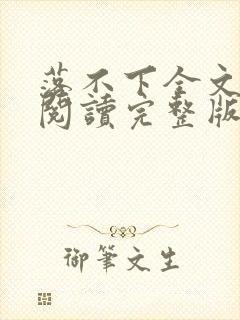 落不下全文
閱讀完整版
御筆文生